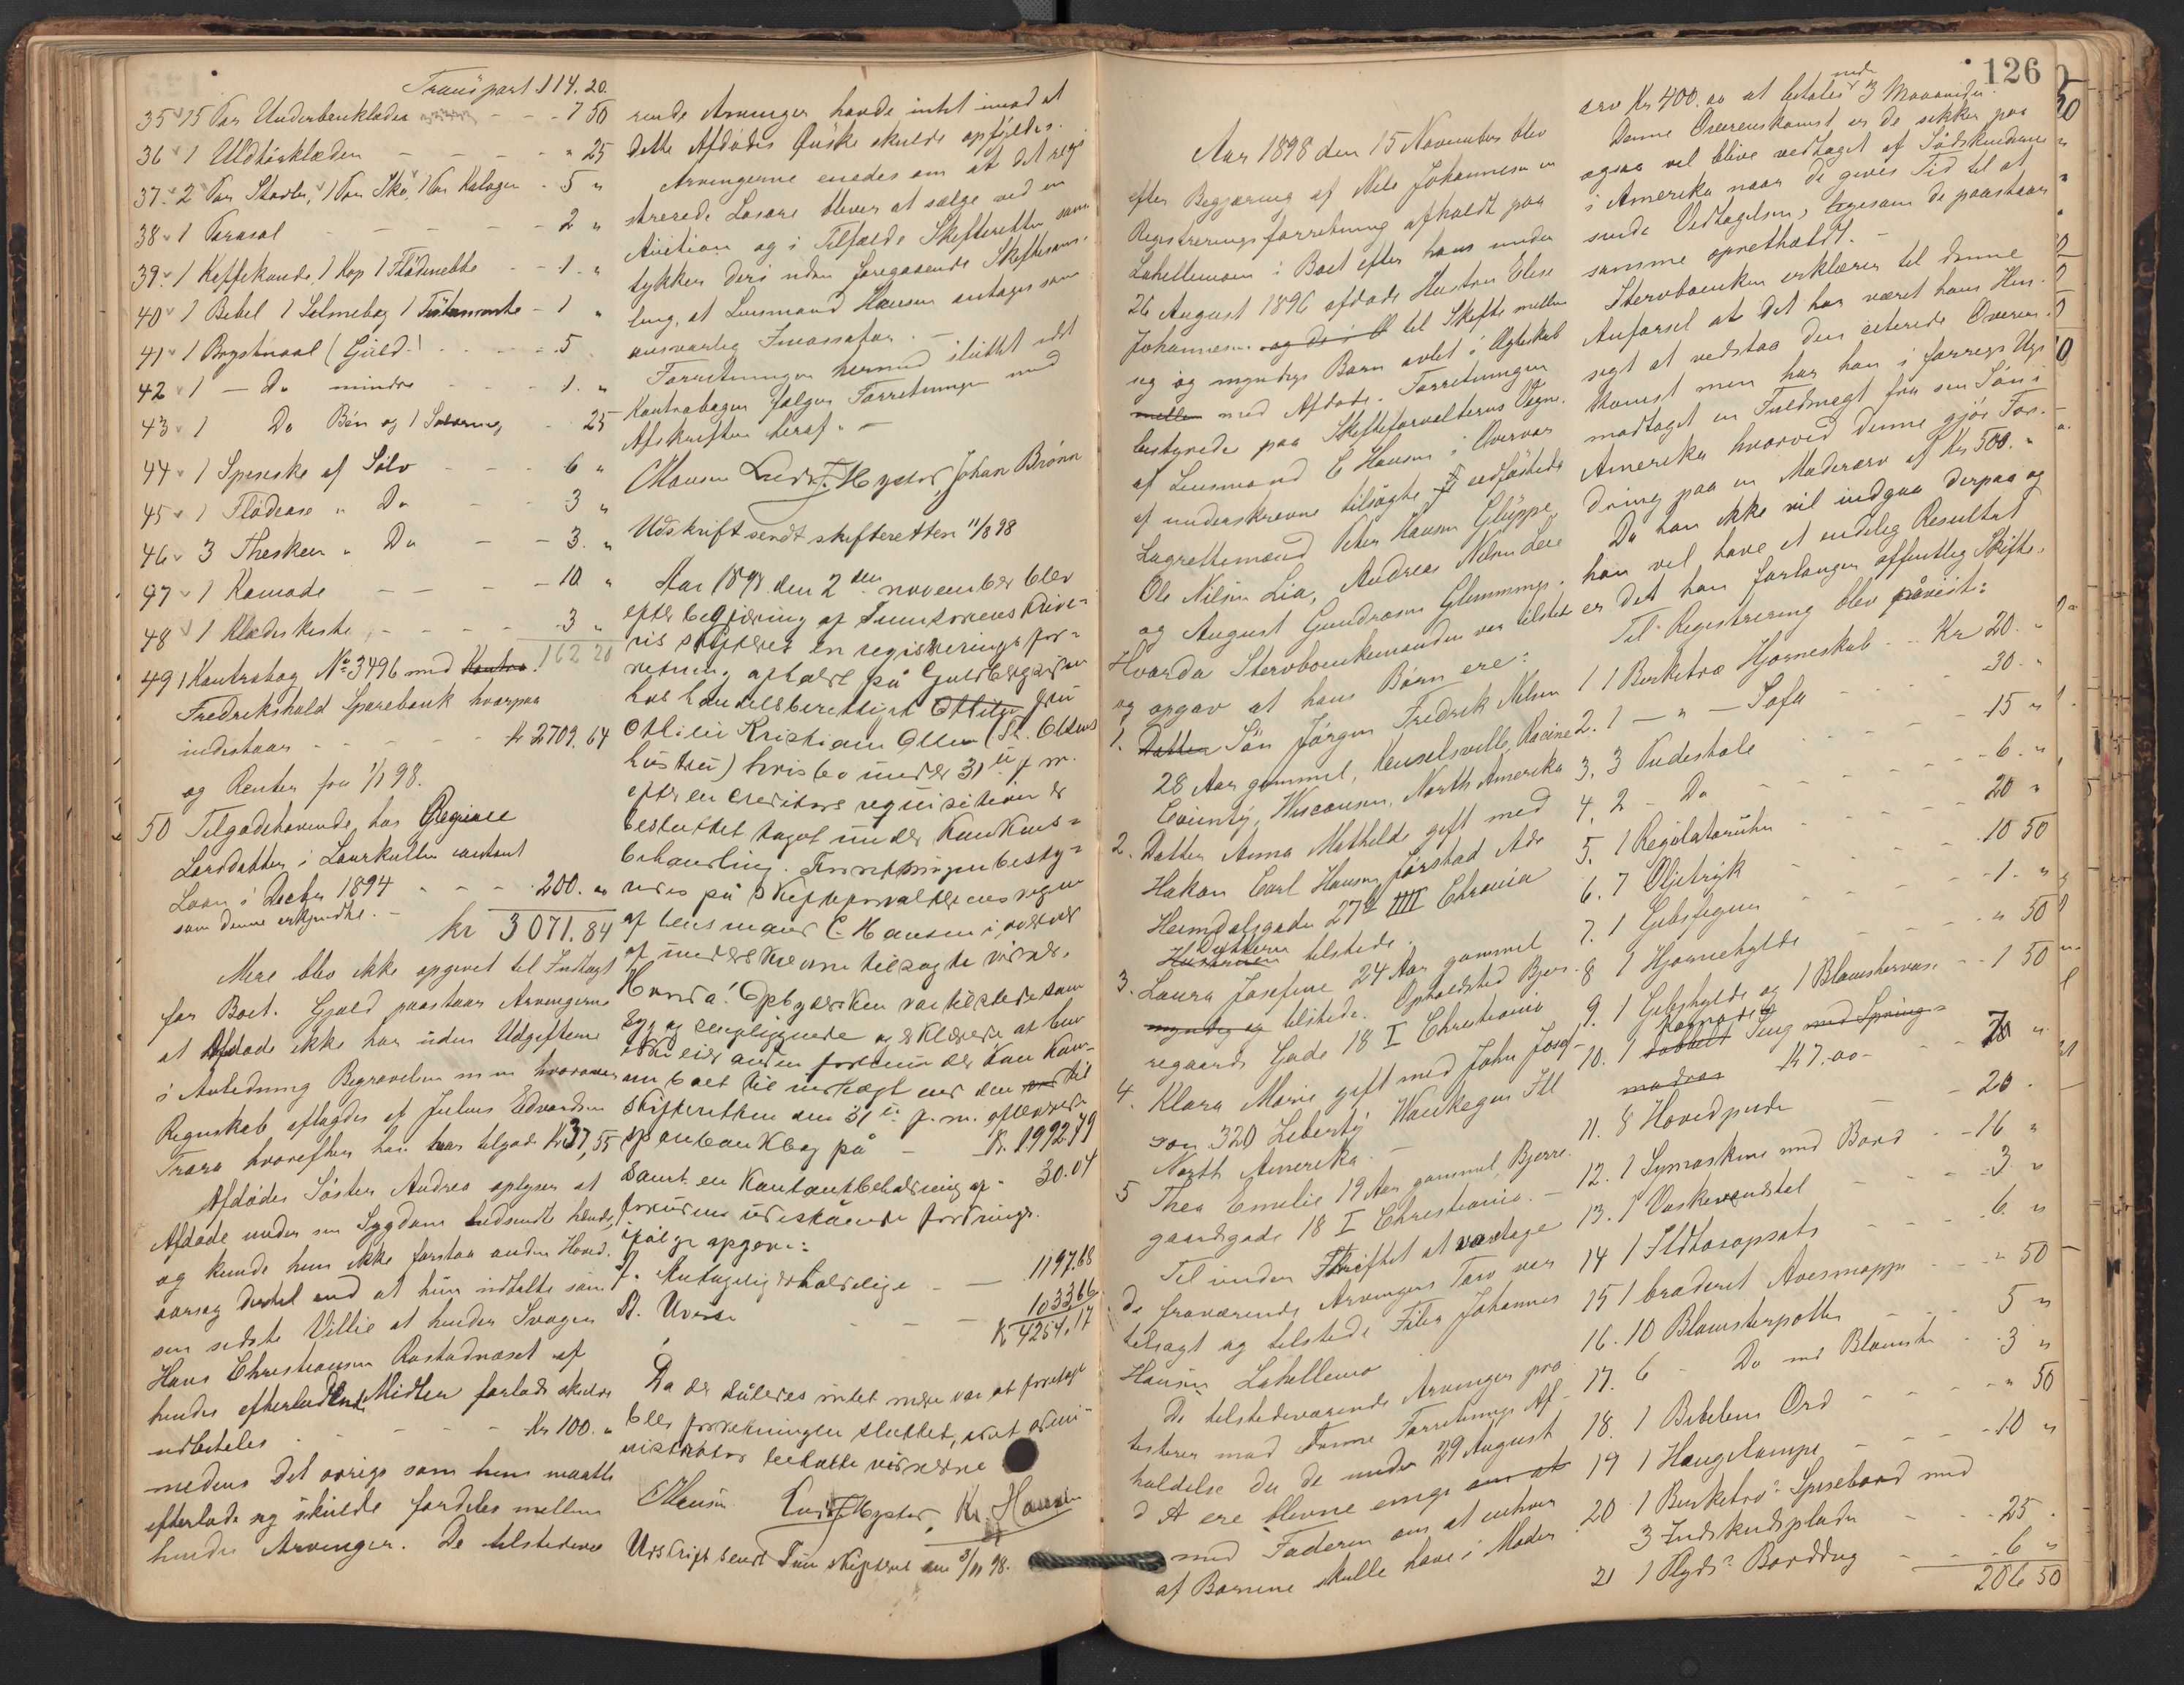 Transport 114.20.
35 15 Par Underbenklæder - - 7 50
36 1 Uldtørklæde - - - " 25
37. 2 Par Støvler, 1 Par Sko, 1 Par Kaloger - 5 "
38 1 Parasol - - - - 2 "
39. 1 Kaffekande, 1 Kop 1 Flødemebbe - - 1. "
40 1 Bibel 1 Salmebog 1 Testamente - 1 "
41 1 Brystnaal (Guld) - - - 5
42 1 - Do mindre - - - 1. "
43 1 Do Ben og 1 - 25
44 1 Speseske af Sølv - - 6 "
45 1 Flødease " Do - - 3 "
46 3 Theskeer " Do - - 3. "
47 1 Komode - - - - 10 "
48 1 Klædeskiste - - - - 3 "
162 20
49 1 Kontrabog No 3496 med Kontra
Fredrikshald Sparebank hvorpaa
indestaar - - - - kr 2709.64
og Renter fra 1/1 98.
50 Tilgodehavende hos Regine
Larsdatter i Laurkullen contant
Laan i Decbr 1894 - - - 200. "
som denne erkjendte. -
kr 3071.84
Mere blev ikke opgivet til Indtægt
for Boet. Gjæld paastaar Arvingerne
at Afdøde ikke har uden Udgifterne
i Anledning Begravelsen m m hvorover
Regnskab aflagdes af Julius Edvardsen
Trara hvorefter han har tilgode Kr 37,55
Afdødes Søster Andrea oplyser at
Afdøde under sin Sygdom hidsendte hende,
og kunde hun ikke forstaa anden Hoved-
aarsag dertil end at hun udtalte som
sin sidste Villie at hendes Svoger
Hans Christiansen Rostadnæset af
hendes efterladende Midler forlods skulde
udbetales - - - - Kr 100. "
medens det øvrige som hun maatte
efterlade sig skulde fordeles mellem
hendes Arvinger. De tilstedevæ
rende Arvinger havde intet imod at
dette Afdødes Ønske skulde opfyldes.
Arvingerne enedes om at det regi
strerede Løsøre bliver at sælge ved en
Auktion og i Tilfælde Skifteretten sam
tykker deri uden foregaaende Skiftesam-
ling, at Lensmand Hansen antages som
ansvarlig Incassator. -
Forretningen hermed sluttet idet
Kontrabogen følger Forretningen med
Afskriften heraf. -
CHansen Ludv. J. Hyster, Johan Brønn
Udskrift sendt skifteretten 11/8 98
Aar 1898 den 2den november blev
efter begjæring af Tunesorenskrive-
ris skifteret en registreringsfor-
retning afholdt på
hos handelsberettiget Ottilie fru
Ottilie Kristiane Olsen (Th. Olsens
hustru) hvis bo under 31te f. m.
efter en creditors requisition er
besluttet taget under Konkurs-
behandling. Forretningen besty-
redes på Skifteforvalterens vegne
af lensmand C. Hansen i overvær
af underskrevne tilsagte vidner.
Hvorda! Opbydersken var tilstede som
syg og sengliggende og erklærede at hun
ikke eier anden formue der kan kom-
me boet til indtægt end den til
Skifteretten den 31te f. m. afleverede
sparebankbog på - kr. 1992.79
samt en Kontantbeholdning af - 30.04
foruden udestående fordringer.
ifølge opgave:
A. Antagelig erholdelige - - 1197.68
B. Uvisse - - - 1033.66
Kr 4254.17
Da der således intet mere var at foretage
blev forretningen sluttet, idet
vidnerne
CHansen Ludv. J. Hyster, Kr. Hansen
Udskrift sendt Tune skifteret den 3/11 98.
126
Aar 1898 den 15 November blev
efter Begjæring af Nils Johannesen en
Registreringsforretning afholdt paa
Lahellemoen i Boet efter hans under
26 August 1896 afdøde Hustru Elise
Johannesen og de i B til Skifte mellem
sig og myndige Børn avlet i Ægteskab
mellem med Afdøde. Forretningen
bestyredes paa Skifteforvalterens Vegne.
af Lensmand C Hansen i Overvær
af underskrevne tilsagte & edfæstede
Lagrettemænd Peter Hansen Gluppe,
Ole Nilsen Lia, Andreas Nilsen Lere
og August Gundrosen Glemminge.
Hvorda Stervboenkemanden var tilstede
og opgav at hans Børn ere:
1. Datter Søn Jørgen Fredrik Nilsen
28 Aar gammel, Kenselsville, Racine
County, Wisconsin, North Amerika
2. Datter Anna Mathilde gift med
Hakon Carl Hansen Jørstad Adr
Heimdalsgade 27b IIII Chrania
Hustruen Datteren tilstede.
3. Laura Josefine 24 Aar gammel
myndig og tilstede. Opholdssted Bjer-
regaards Gade 18 I Christiania
4. Klara Marie gift med John Josef-
son 320 Liberty Waukegan Ill
North Amerika. -
5 Thea Emilie 19 Aar gammel, Bjerre-
gaardsgade 18 I Christiania. -
Til under Skriftet at varetage
de fraværende Arvingers Tarv var
tilsagt og tilstede Filip Johannes
Hansen Lahellemo
De tilstedeværende Arvinger pro
testerer mod denne Forretnings Af-
holdelse da de under 29 August
d A ere blevne enige om at
med Faderen om at enhver
af Børnene skulle have i Møder
arv Kr 400. oo at betales inden 3 Maaneder
Denne Overenskomst er de sikker paa
ogsaa vil blive vedtaget af Sødskenderne
i Amerika naar de gives Tid til at
sende Vedtagelsen, ligesom de paastaar
samme opretholdt. -
Stervboenken erklærer til denne
Anførsel at det har været hans Hen-
sigt at vedstaa den citerede Overens-
komst men har han i forrige Uge
modtaget en Fuldmagt fra sin Søn i
Amerika hvorved denne gjør For-
dring paa en Møderarv af Kr 500. "
Da han ikke vil indgaa derpaa og
han vil have et endelig Resultat
er det han forlanger offentlig Skifte.
Til Registrering blev påvist:
1 1 Birketræ Hjørneskab - - Kr 20. "
2. 1 - " - Sofa - - - - 30. "
3. 3 Pudestole - - - - 15 "
4. 2 - Do - - - - 6. "
5. 1 Regulatoruhr - - - 20 "
6. 7 Oljetryk - - - 10 50
7. 1 Gibsfigur - - - 1. "
8 1 Hjørnehylde - - - " 50
9. 1 Gibshylde og 1 Blomstervase - - 1 50
10. 1 dobbelt Seng med Spring-
madras Kr 7.00 - - 7 "
11. 8 Hovedpuder - - 20.
12. 1 Symaskine med Bord - - 16 "
13. 1 Vaskevandstel - - - 3 "
14 1 Ildtøiopsats - - - 6. "
15 1 broderet Avismappe - - - " 50
16. 10 Blomsterpotter - - - 5 "
17. 6 - Do med Blomster - - 3 "
18. 1 Bibelens Ord - - - " 50
19 1 Hængelampe - - - 10 "
20 1 Birketræ Spisebord med
3 Indskudsplader - - - 25.
21 1 Plyds Borddug - - - 6 "
206 50